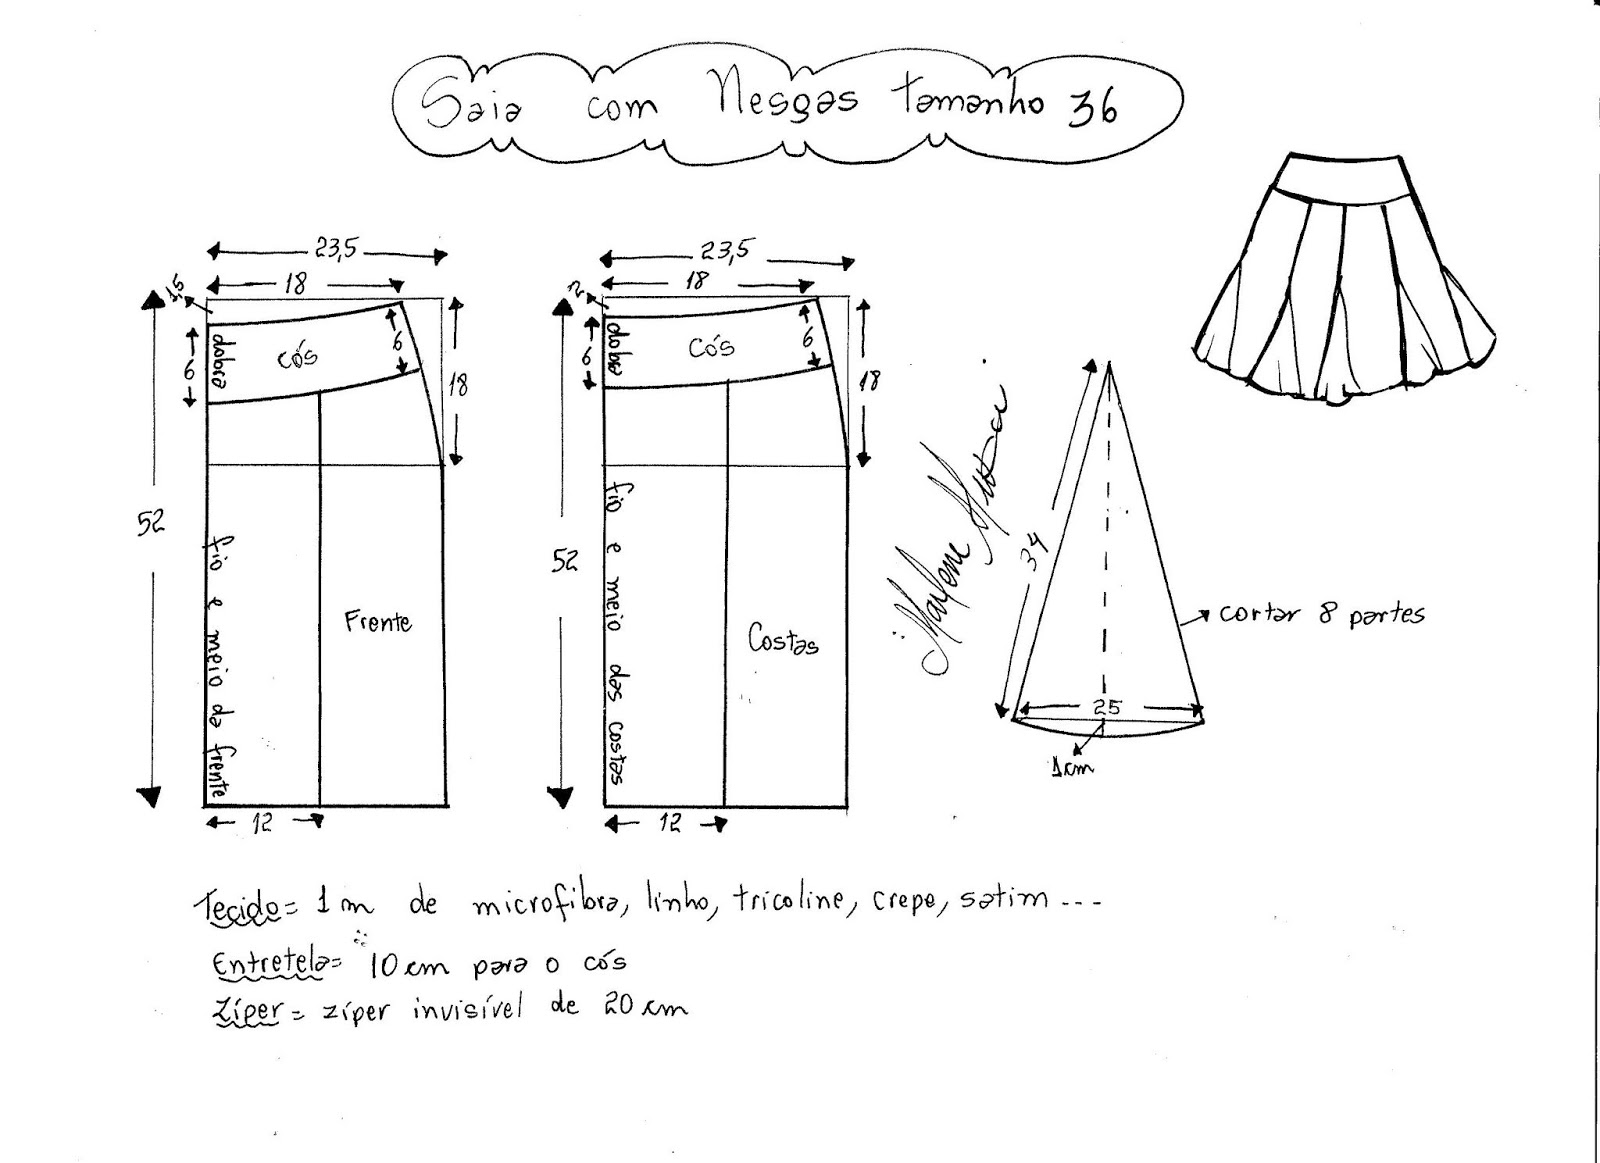 Saia com Nesgas tamanho 36
23,5
18
1,5
6
dobra
cós
6
18
52
fio e meio da frente
Frente
12
23,5
18
2
6
dobra
cós
6
18
52
fio e meio das costas
Costas
12
Marlene
34
25
1cm
cortar 8 partes
Tecido= 1 m de microfibra, linho, tricoline, crepe, satim ...
Entretela= 10 cm para o cós
Zíper= zíper invisível de 20 cm